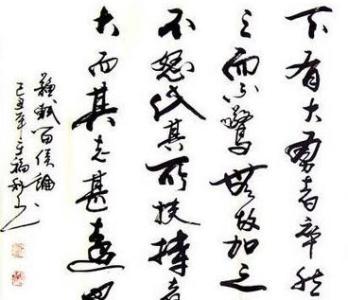 下有大勇者卒然
之而不驚無故加之
不怒此其所挾持者
大而其志甚遠也
蘇軾留侯論
己丑年